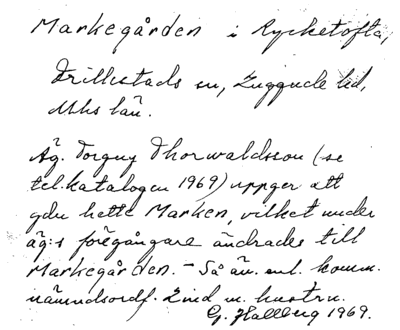 Markegården i Rycketofta,
Frillestads sn, Luggude hd,
Mhs län.
Äg. Torguy Thorwaldsson (se
tel.katalogen 1969) uppger att
gdn hette Marken, vilket under
äg:s föregångare ändrades till
Markegården. – Så äv. enl. komm.
nämndsordf. Lind m. hustru.
G. Hallberg 1969.